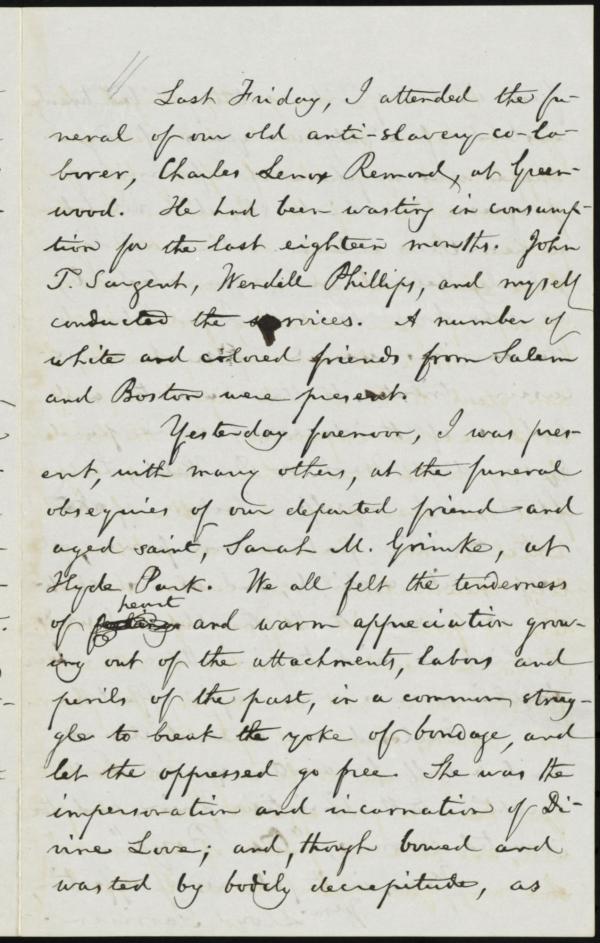 Last Friday, I attended the fu-
neral of our old anti-slavery co-la-
borer, Charles Lenox Remond, at Green-
wood. He had been wasting in consump-
tion for the last eighteen months. John
T. Sargent, Wendell Phillips, and myself
conducted the services. A number of
white and colored friends from Salem
and Boston were present.
Yesterday forenoon, I was pres-
ent, with many others, at the funeral
obsequies of our departed friend and
aged saint, Sarah M. Grimke, at
Hyde Park. We all felt the tenderness
heart
of and warm appreciation grow-
ing out of the attachments, labors and
perils of the past, in a common strug-
gle to break the yoke of bondage, and
let the oppressed go free. She was the
impersonation and incarnation of Di-
vine Love; and, though bowed and
wasted by bodily decrepitude, as